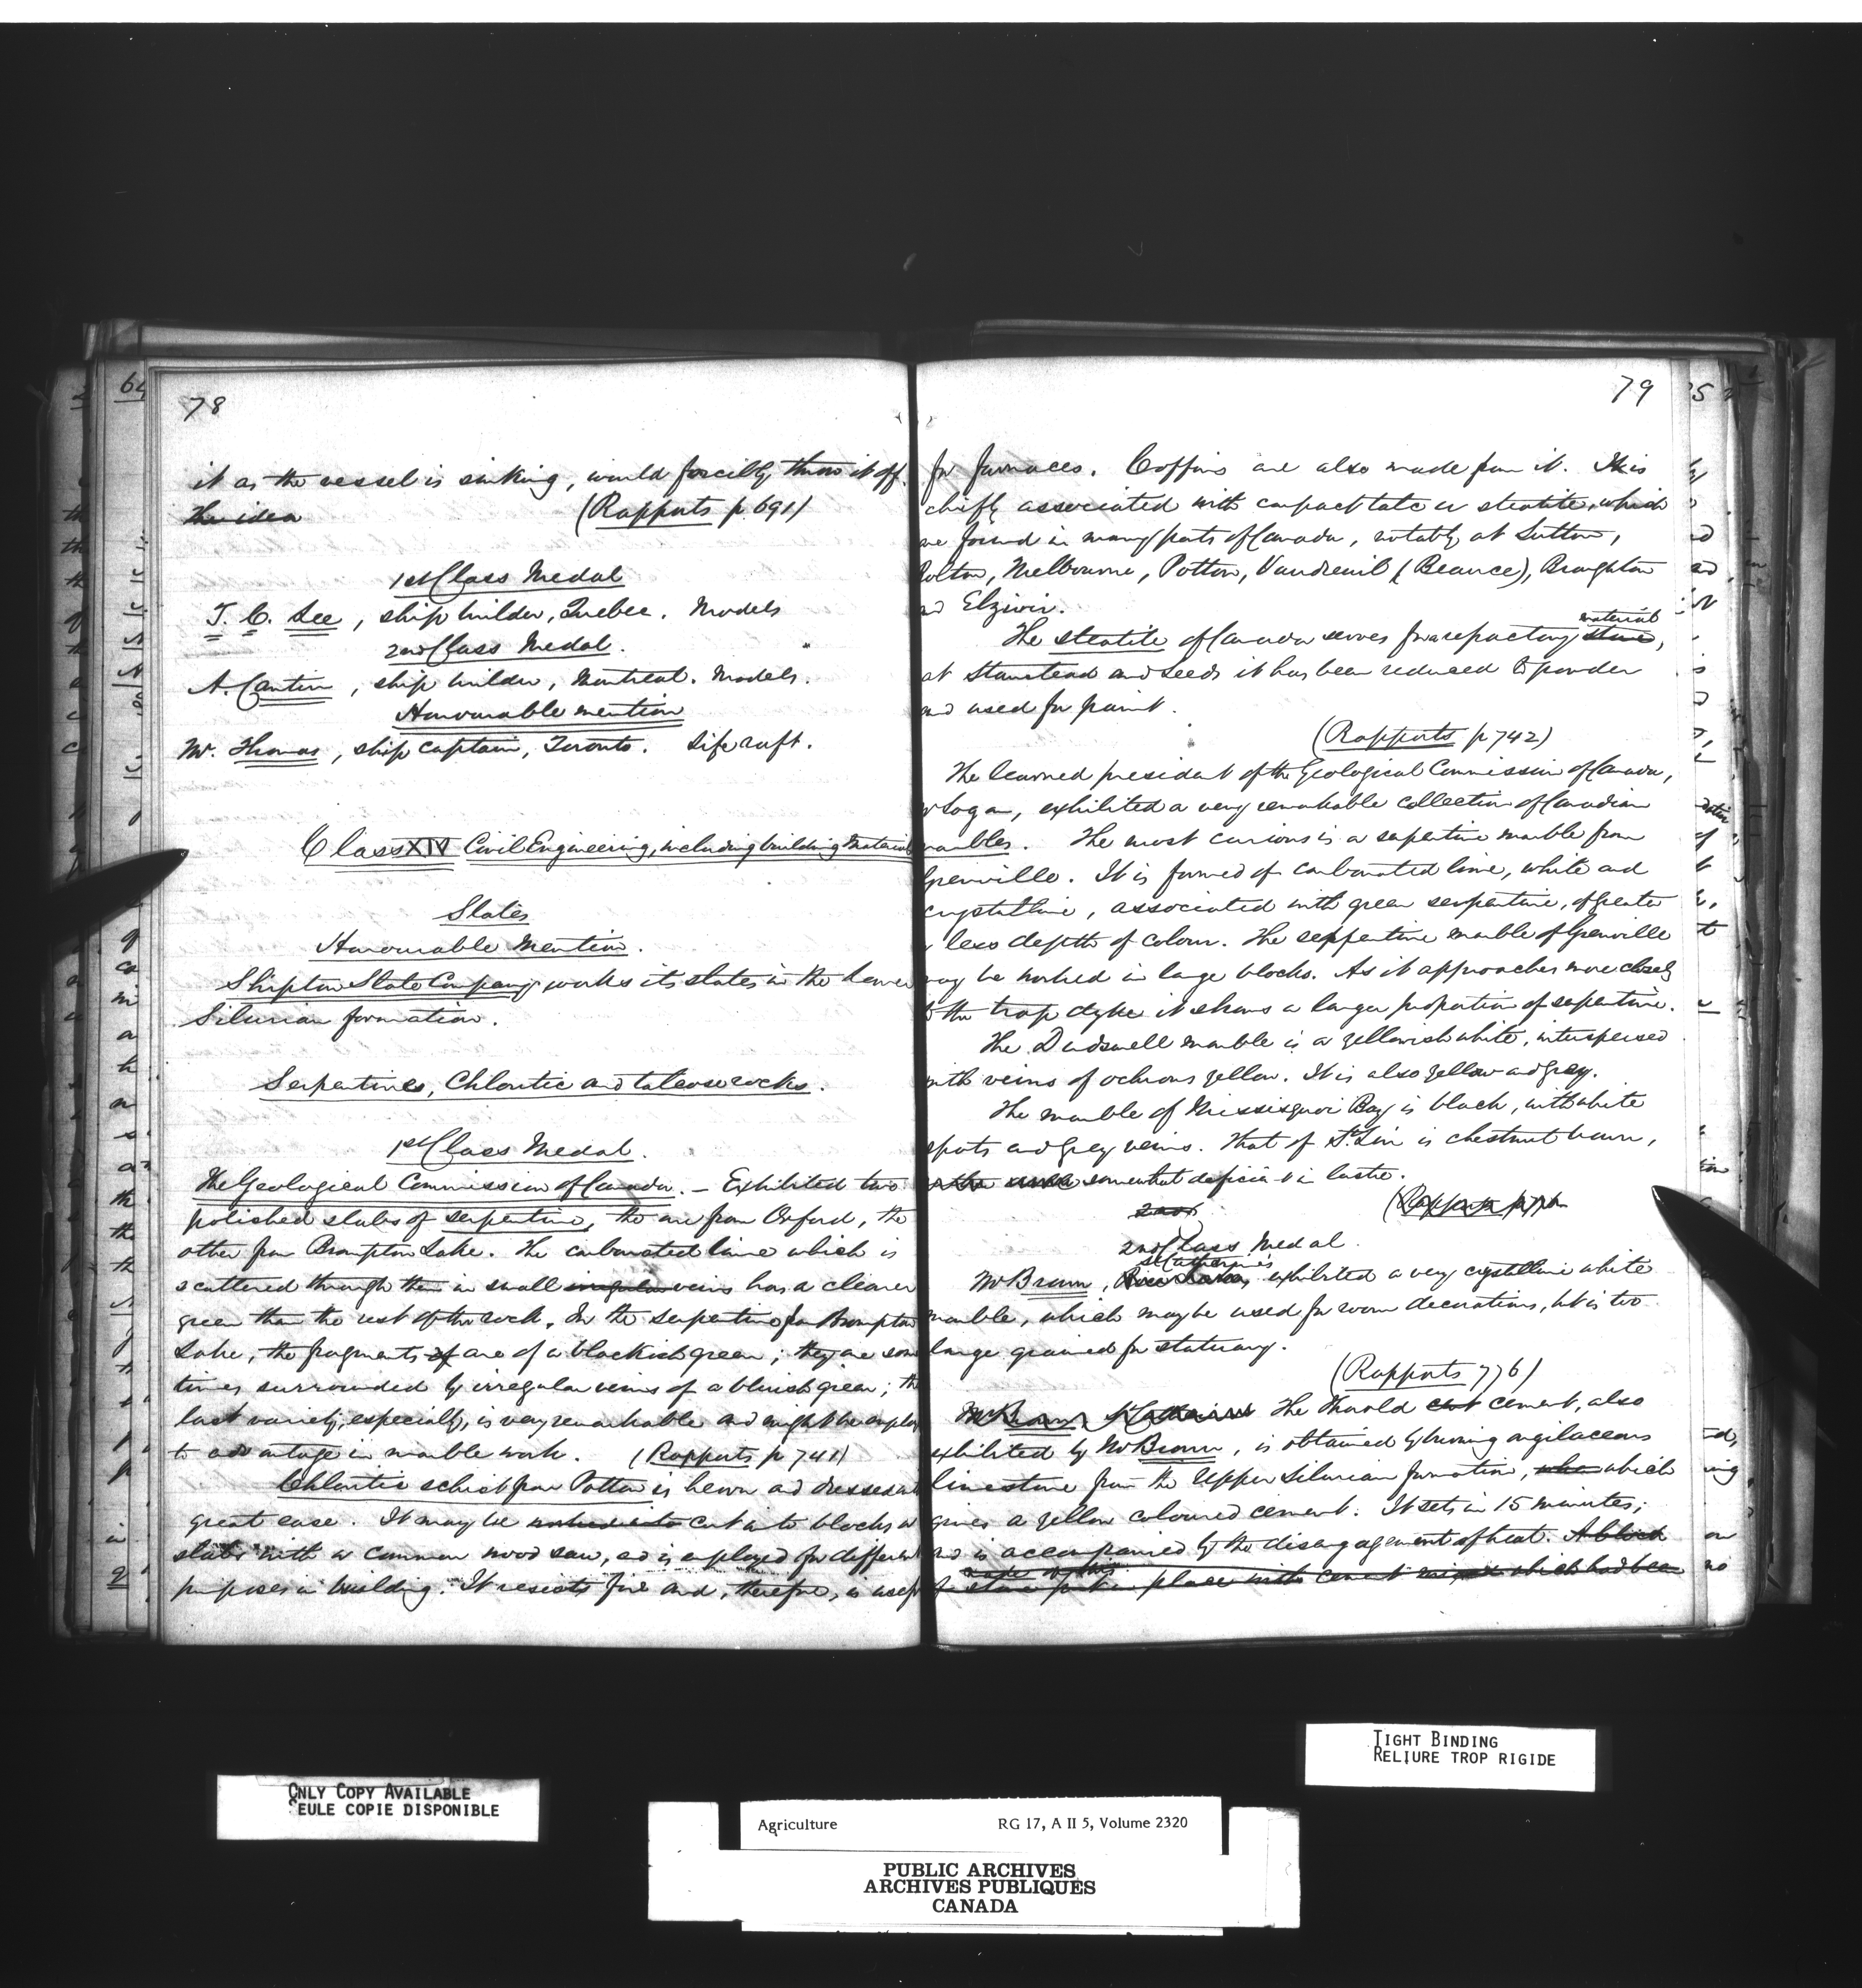 78
it as the vessel is sinking, would forcibly throw it off.
The idea (Rapports p 691)
1st Class Medal
T. C. Lee, ship builder, Quebec. Models
2nd Class Medal.
A. Cantin, ship builder, Montreal. Models.
Honourable mention
Mr. Thomas, ship captain, Toronto. Life raft.
Class XIV Civil Engineering, including building Material
Slates
Honourable Mention.
Shipton Slate Company works its slates in the Lower
Silurian formation.
Serpentines, Chloritic and talcose rocks.
1st Class Medal.
The Geological Commission of Canada. - Exhibited two
polished slabs of serpentine, the one from Oxford, the
other from Brompton Lake. The carbonated lime which is
scattered through them in small irregular veins has a clearer
green than the rest of the rock. In the serpentine from Brompton
Lake, the fragments of are of a blackish green; they are some
times surrounded by irregular veins of a bluish green; the
last variety, especially, is very remarkable and might be employ
to advantage in marble work. (Rapports p 741)
Chloritic schist from Potton is hewn and dresses with
great ease. It may be worked into cut into blocks or
slabs with a common wood saw, and is employed for different
purposes in building. It resists fire and, therefore, is usef
79
for furnaces. Coffins are also made from it. It is
chiefly associated with compact talc or steatite, which
are found in many parts of Canada, notably at Sutton,
Bolton, Melbourne, Potton, Vaudreuil (Beauce), Broughton
and Elzivir.
material
The steatite of Canada serves for a refractory stone,
at Stanstead and Leeds it has been reduced to powder
and used for paint.
(Rapports p 742)
The learned president of the Geological Commission of Canada,
Mr Logan, exhibited a very remarkable collection of Canadian
marbles. The most curious is a serpentine marble from
Grenville. It is formed of carbonated lime, white and
crystalline, associated with green serpentine, of greater
or less depth of colour. The serpentine marble of Grenville
may be worked in large blocks. As it approaches more closely
to the trap dyke it shows a larger proportion of serpentine.
The Dudswell marble is a yellowish white, interspersed
with veins of ochrous yellow. It is also yellow and gray.
The marble of Missisquoi Bay is black, with white
spots and grey veins. That of St. Lin is chestnut brown,
somewhat deficient in lustre.
(Rapports p
2nd Class Medal.
St Catherine's
Mr Brown, exhibited a very crystalline white
marble, which may be used for room decorations, but is too
large grained for statuary.
(Rapports 776)
Mr Brown, St Catherines The Thorold cement, also
exhibited by Mr Brown, is obtained by burning argilaceous
limestone from the Upper Silurian formation, which
gives a yellow coloured cement. It sets in 15 minutes;
and is accompanied by the disengagement of heat. A block
made of this
of stone put in place with cement mixed which had been
ONLY COPY AVAILABLE
SEULE COPIE DISPONIBLE
TIGHT BINDING
RELIURE TROP RIGIDE
Agriculture RG 17, A II 5, Volume 2320
PUBLIC ARCHIVES
ARCHIVES PUBLIQUES
CANADA